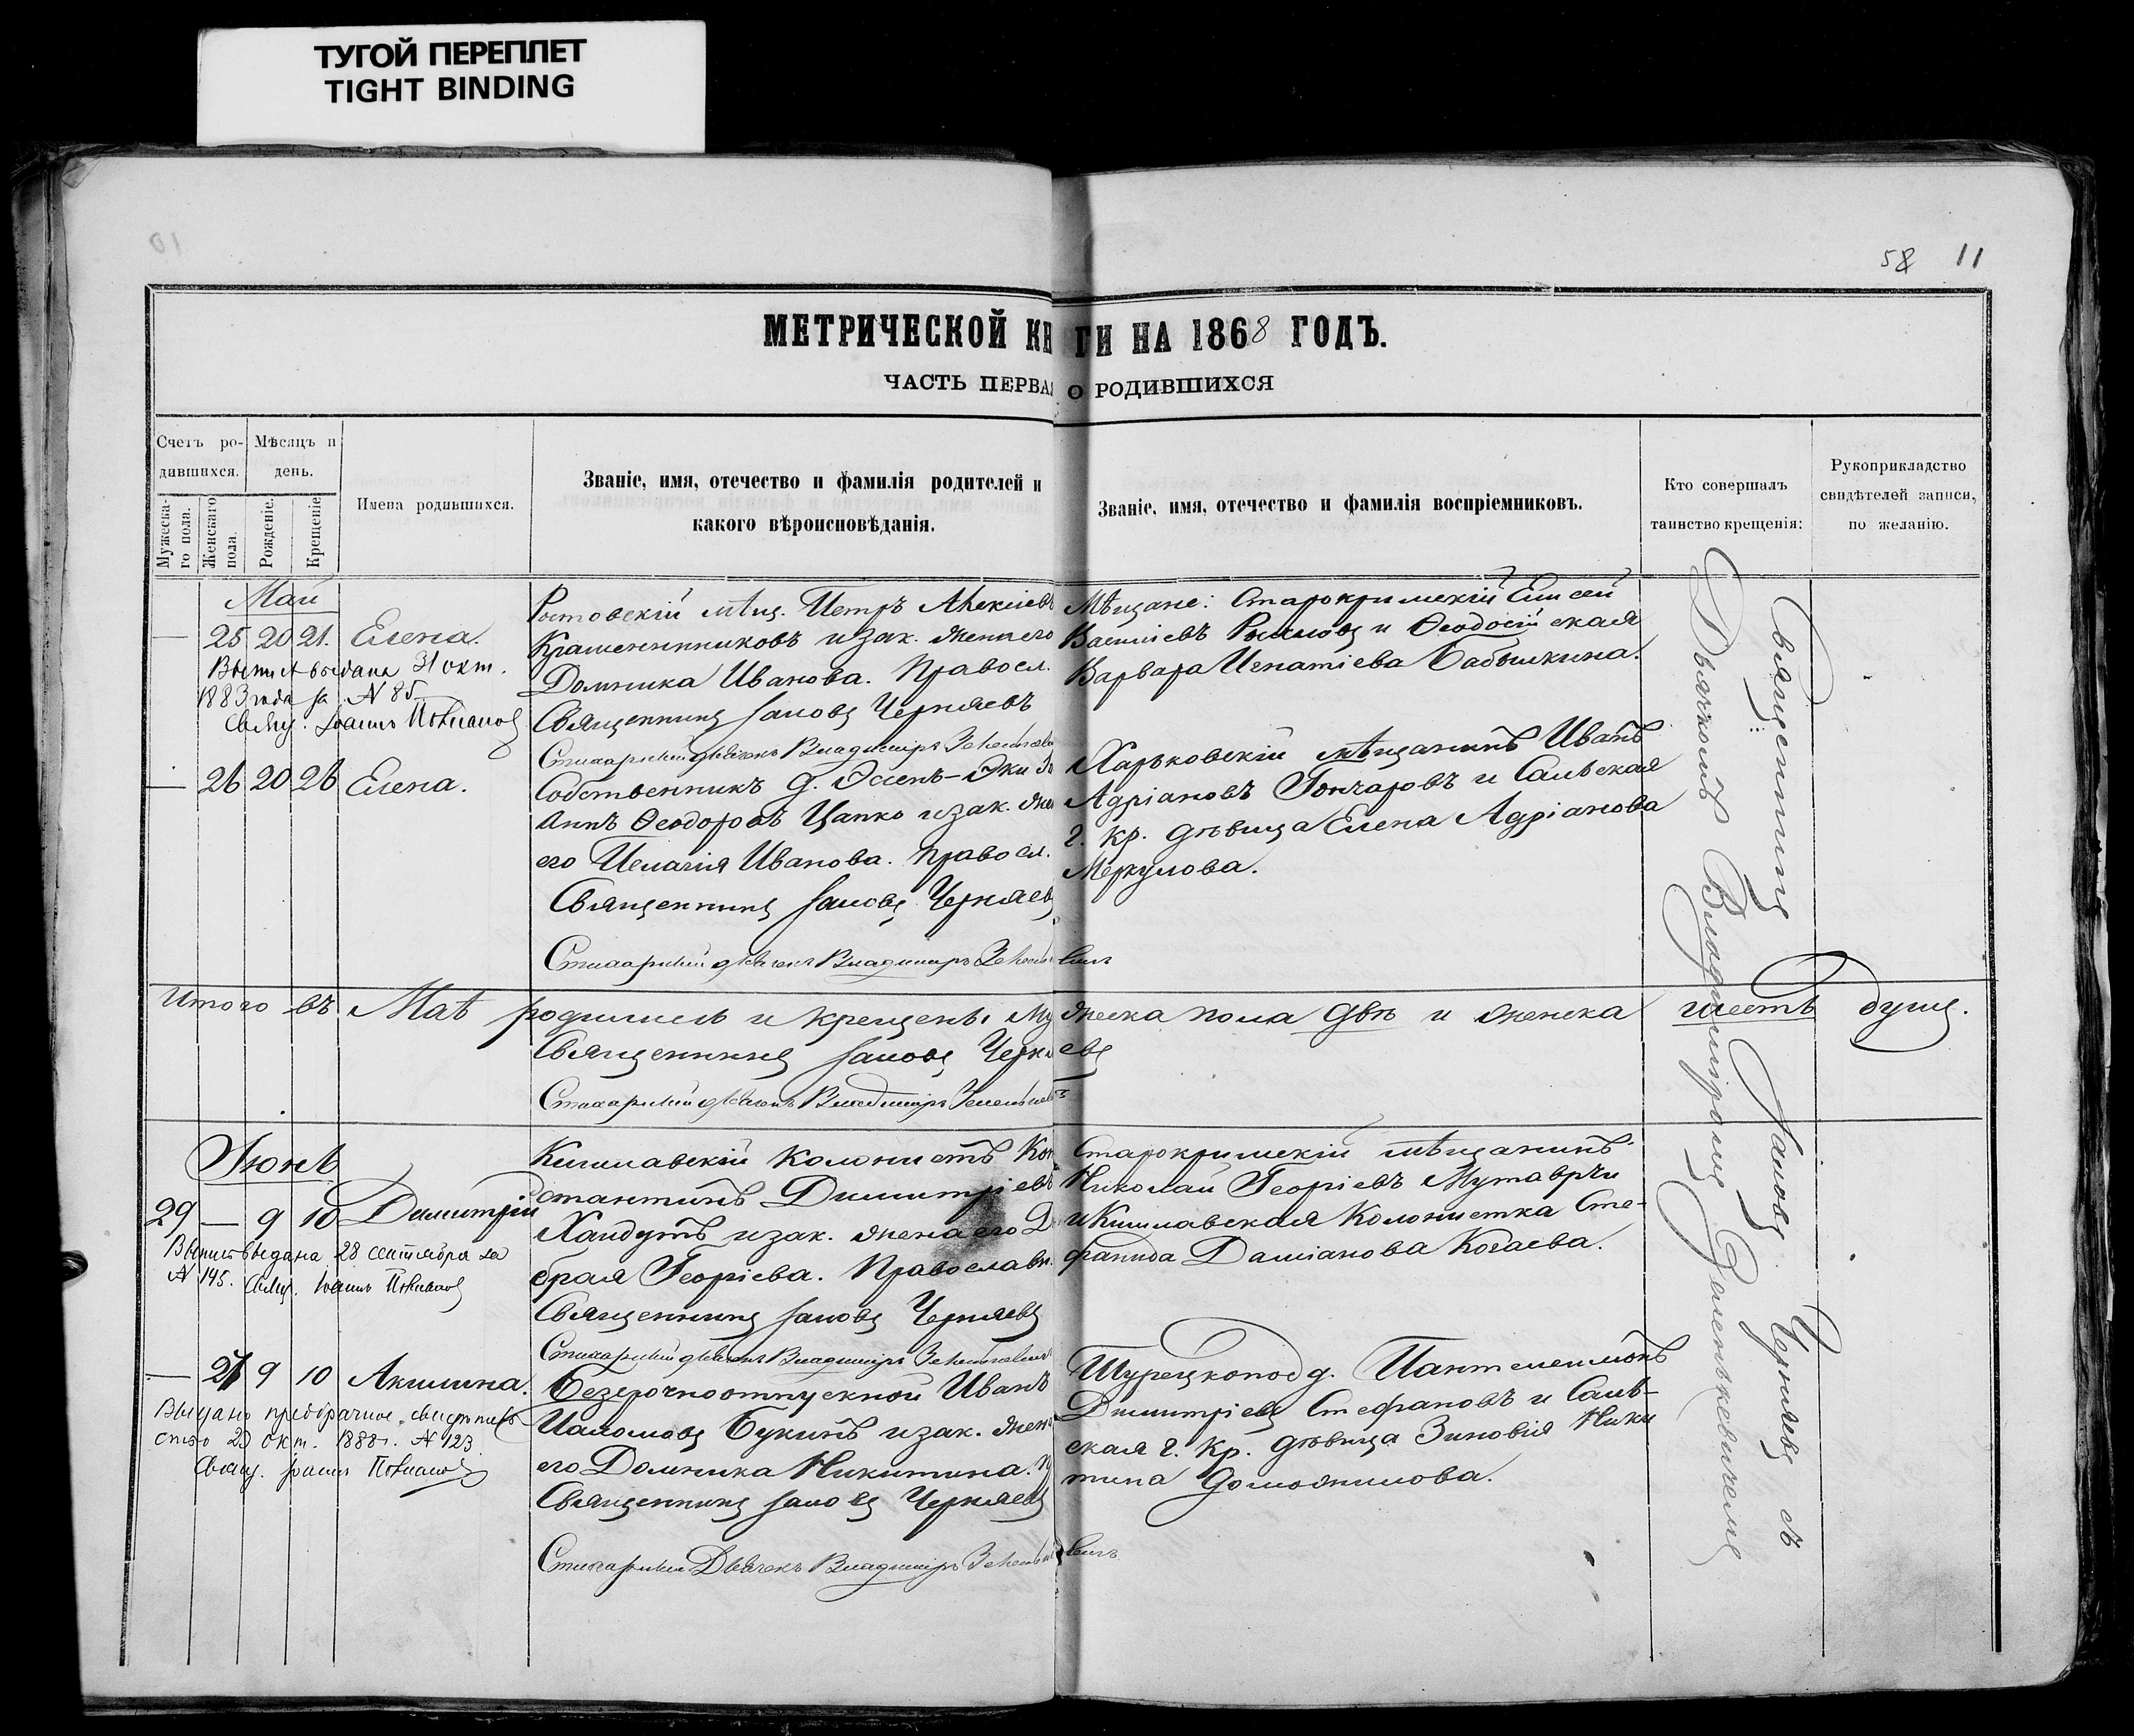 ТУГОЙ ПЕРЕПЛЕТ
TIGHT BINDING
58 11
МЕТРИЧЕСКОЙ КНИГИ НА 1868 ГОДЪ.
ЧАСТЬ ПЕРВАЯ О РОДИВШИХСЯ
Счетъ ро-
дившихся.
Мужеска-
го пола.
Женскаго
пола.
Мѣсяцъ и
день.
Рожденіе.
Крещеніе.
Имена родившихся.
Званіе, имя, отечество и фамилія родителей и
какого вѣроисповѣданія.
Званіе, имя, отечество и фамилія воспріемниковъ.
Кто совершалъ
таинство крещенія:
Рукоприкладство
свидѣтелей записи,
по желанію.
Май
— 25 20 21. Елена.
Выпись выдана 31 окт.
1883 года за № 85
Свящ. Іоаннъ
Ростовскій мѣщ. Петръ Алексіевъ
Крашенинниковъ и зак. жена его
Домника Иванова. Правосл.
Священникъ Іаковъ Черняевъ
Стихарный дьячекъ Владиміръ
Мѣщане: Старокримскій Елисей
Василіевъ и Ѳеодосійская
Варвара Игнатіева Бабышкина.
— 26 20 26 Елена.
Собственникъ д. Эсенъ-Эки
Ѳеодоровъ Цапко и зак. жена
его Пелагія Иванова. Правосл.
Священникъ Іаковъ Черняевъ
Стихарный дьячекъ Владиміръ
Харьковскій мѣщанинъ Иванъ
Адріановъ Гончаровъ и Сальская
г. кр. дѣвица Елена Адріанова
Меркулова.
Итого въ Маѣ родились и крещены мужеска пола двѣ и женска шесть душъ.
Священникъ Іаковъ Черняевъ
Стихарный дьячекъ Владиміръ
Іюнь
29 — 9 10 Димитрій
Выпись выдана 28 сентября за
№ 145. Свящ. Іоаннъ
Кишлавскій колонистъ Кон
стантинъ Димитріевъ
и зак. жена его До
брая Георгіева. Православн.
Священникъ Іаковъ Черняевъ
Стихарный дьячекъ Владиміръ
Старокримскій мѣщанинъ
Николай Георгіевъ
и Кишлавская колонистка Сте-
фанида Даміанова
— 27 9 10 Акилина.
Выдано предбрачное свидѣтель
ство 29 окт. 1888 г. № 123.
Свящ. Іоаннъ
Безсрочноотпускной Иванъ
Букинъ и зак. жена
его Домника Никитина.
Священникъ Іаковъ Черняевъ
Стихарный Дьячекъ Владиміръ
Турецкопод д. Пантелеимонъ
Димитріевъ Стефановъ и Саль-
ская г. кр. дѣвица Зиновія Ники
тина Доможилова.
Священникъ Іаковъ Черняевъ съ
Дьячкомъ Владиміромъ Зеленкевичемъ